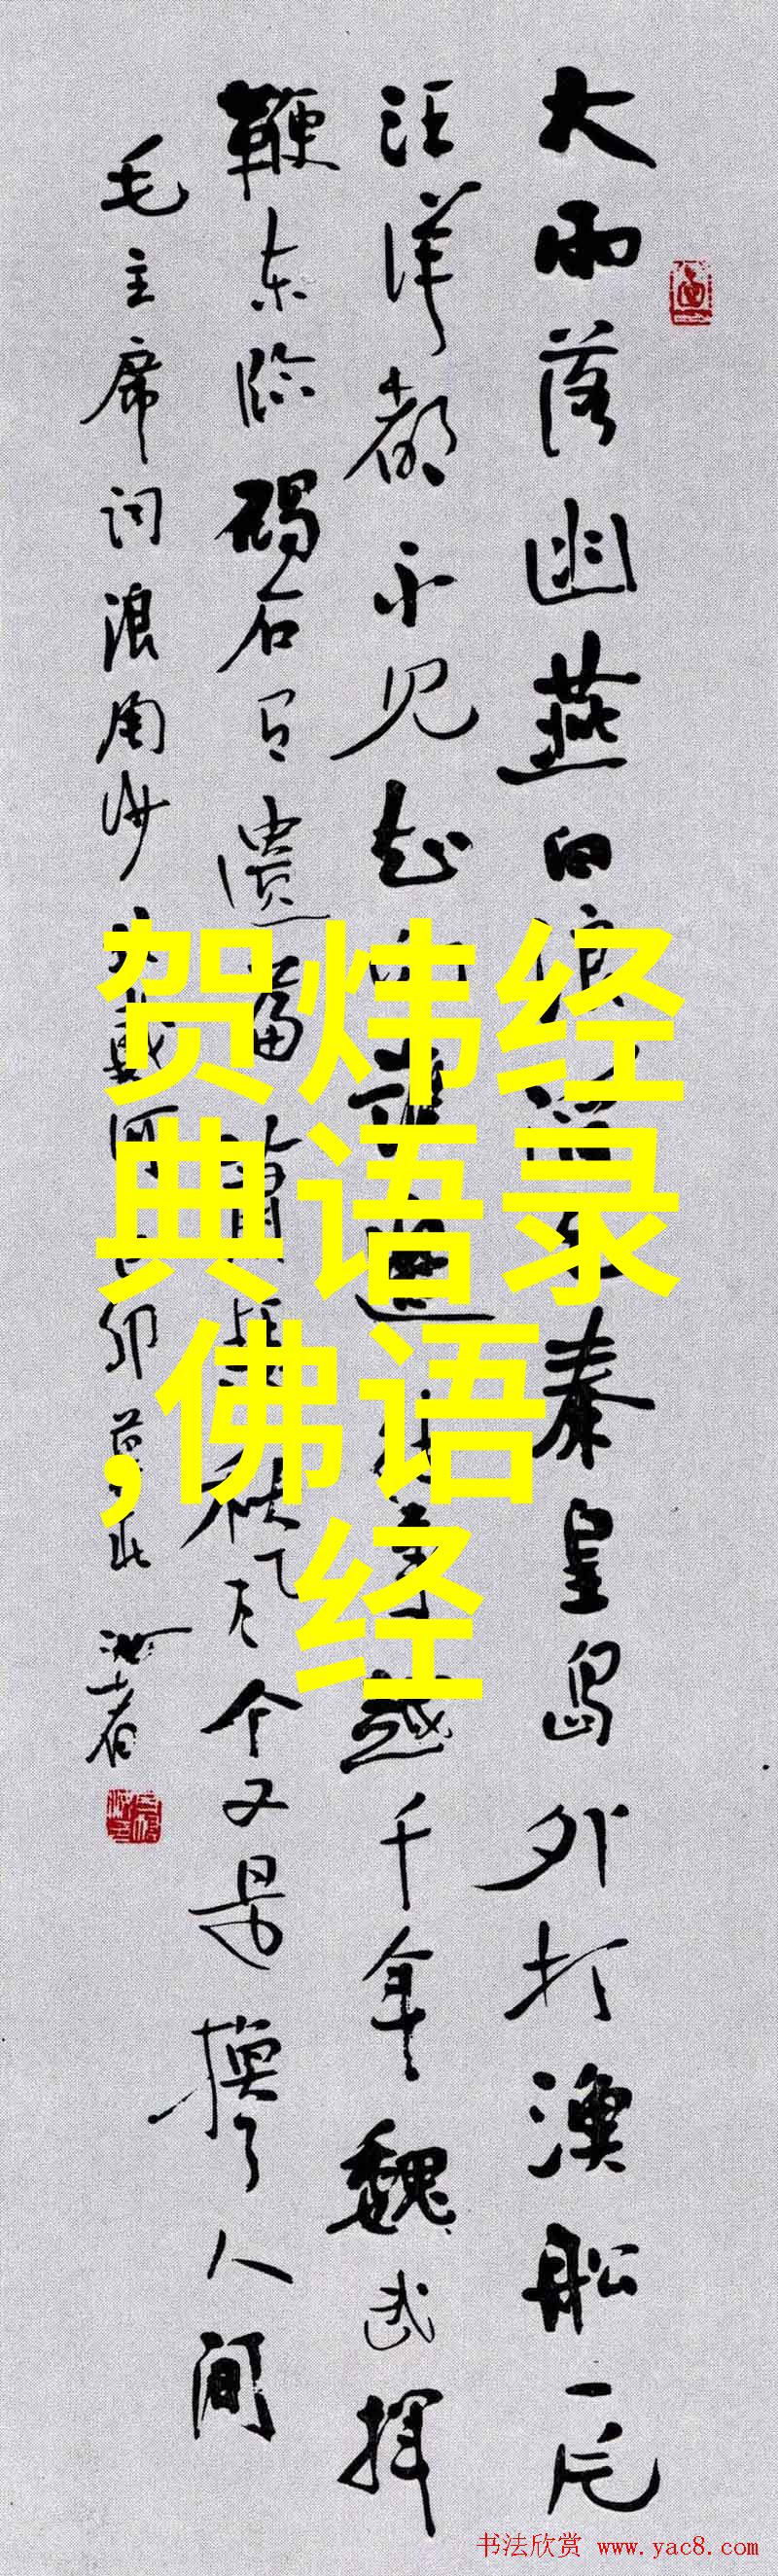 大雨落幽燕白浪滔天秦皇岛外打渔船一片
汪洋都不见知向谁边往事越千年魏武挥
鞭东临碣石有遗篇萧瑟秋风今又是换了人间
毛主席词浪淘沙北戴河卯
贺炜经
典语录
,佛语
经
书法欣赏 www.yac8.com